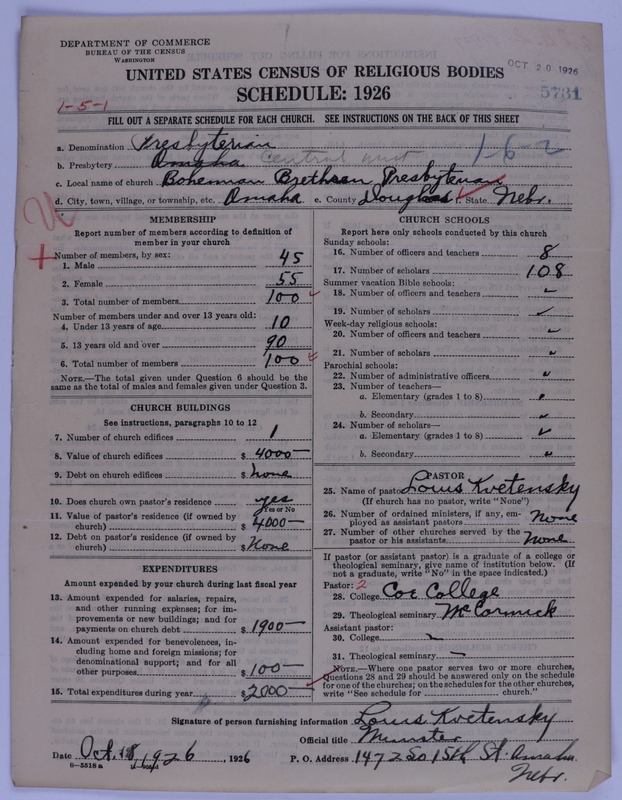 DEPARTMENT OF COMMERCE
BUREAU OF THE CENSUS
WASHINGTON
OCT 20 1926
UNITED STATES CENSUS OF RELIGIOUS BODIES
SCHEDULE: 1926
5731
1-5-1
FILL OUT A SEPARATE SCHEDULE FOR EACH CHURCH. SEE INSTRUCTIONS ON THE BACK OF THIS SHEET
a. Denomination Presbyterian
b. Presbytery Omaha Central unit 1-6-2
c. Local name of church Bohemian Brethren Presbyterian
d. City, town, village, or township, etc. Omaha e. County Douglas f. State Nebr.
MEMBERSHIP
Report number of members according to definition of
member in your church
Number of members, by sex:
1. Male 45
2. Female 55
3. Total number of members 100
Number of members under and over 13 years old:
4. Under 13 years of age 10
5. 13 years old and over 90
6. Total number of members 100
NOTE.—The total given under Question 6 should be the
same as the total of males and females given under Question 3.
CHURCH BUILDINGS
See instructions, paragraphs 10 to 12
7. Number of church edifices 1
8. Value of church edifices $ 4000—
9. Debt on church edifices $ None
10. Does church own pastor's residence yes
Yes or No
11. Value of pastor's residence (if owned by
church) $ 4000—
12. Debt on pastor's residence (if owned by
church) $ None
EXPENDITURES
Amount expended by your church during last fiscal year
13. Amount expended for salaries, repairs,
and other running expenses; for im-
provements or new buildings; and for
payments on church debt $ 1900—
14. Amount expended for benevolences, in-
cluding home and foreign missions; for
denominational support; and for all
other purposes $ 100—
15. Total expenditures during year $ 2000—
CHURCH SCHOOLS
Report here only schools conducted by this church
Sunday schools:
16. Number of officers and teachers 8
17. Number of scholars 108
Summer vacation Bible schools:
18. Number of officers and teachers
19. Number of scholars
Week-day religious schools:
20. Number of officers and teachers
21. Number of scholars
Parochial schools:
22. Number of administrative officers
23. Number of teachers—
a. Elementary (grades 1 to 8)
b. Secondary
24. Number of scholars—
a. Elementary (grades 1 to 8)
b. Secondary
PASTOR
25. Name of pastor Louis Kvetensky
(If church has no pastor, write "None")
26. Number of ordained ministers, if any, em-
ployed as assistant pastors None
27. Number of other churches served by the
pastor or his assistants None
If pastor (or assistant pastor) is a graduate of a college or
theological seminary, give name of institution below. (If
not a graduate, write "No" in the space indicated.)
Pastor: 2
28. College Coe College
29. Theological seminary McCormick
Assistant pastor:
30. College —
31. Theological seminary —
NOTE.—Where one pastor serves two or more churches,
Questions 28 and 29 should be answered only on the schedule
for one of the churches; on the schedules for the other churches,
write "See schedule for church."
Signature of person furnishing information Louis Kvetensky
Official title Minister
Date Oct. 18, 1926, 1926 P. O. Address 1472 So 15th St. Omaha
8—5518 a Nebr.